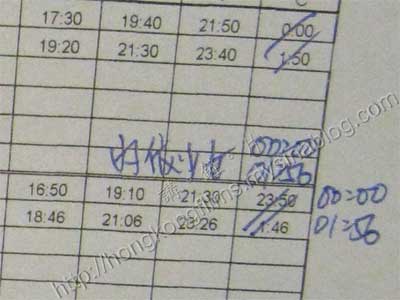 17:30 19:40 21:50 0:00
19:20 21:30 23:40 1:50
00:00
01:56
16:50 19:10 21:30 23:50 00:00
18:46 21:06 23:26 1:46 01:56
http://hongkongfilms.mysinablog.com